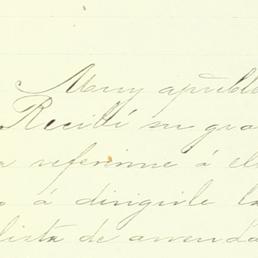 Muy apreble
Recibí su gra
a referirme á el
o á dirigirle la
lista de arrenda